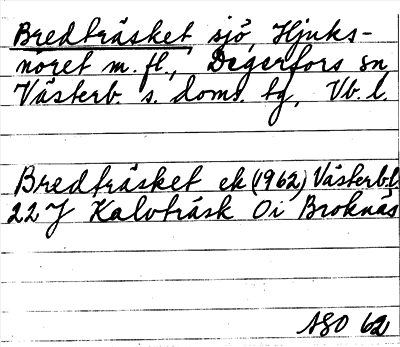 Bredträsket, sjö, Hjuks-
nöret m. fl., Degerfors sn
Västerb. s. doms. tg, Vb. l.
Bredträsket ek (1962) Västerb.l.
22 J Kalvträsk Oi Broknäs
ASO 62